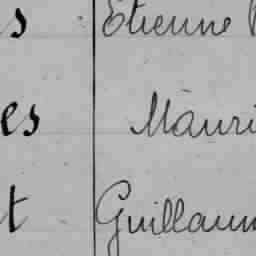 s Etienne
es Mauri
t Guillaum